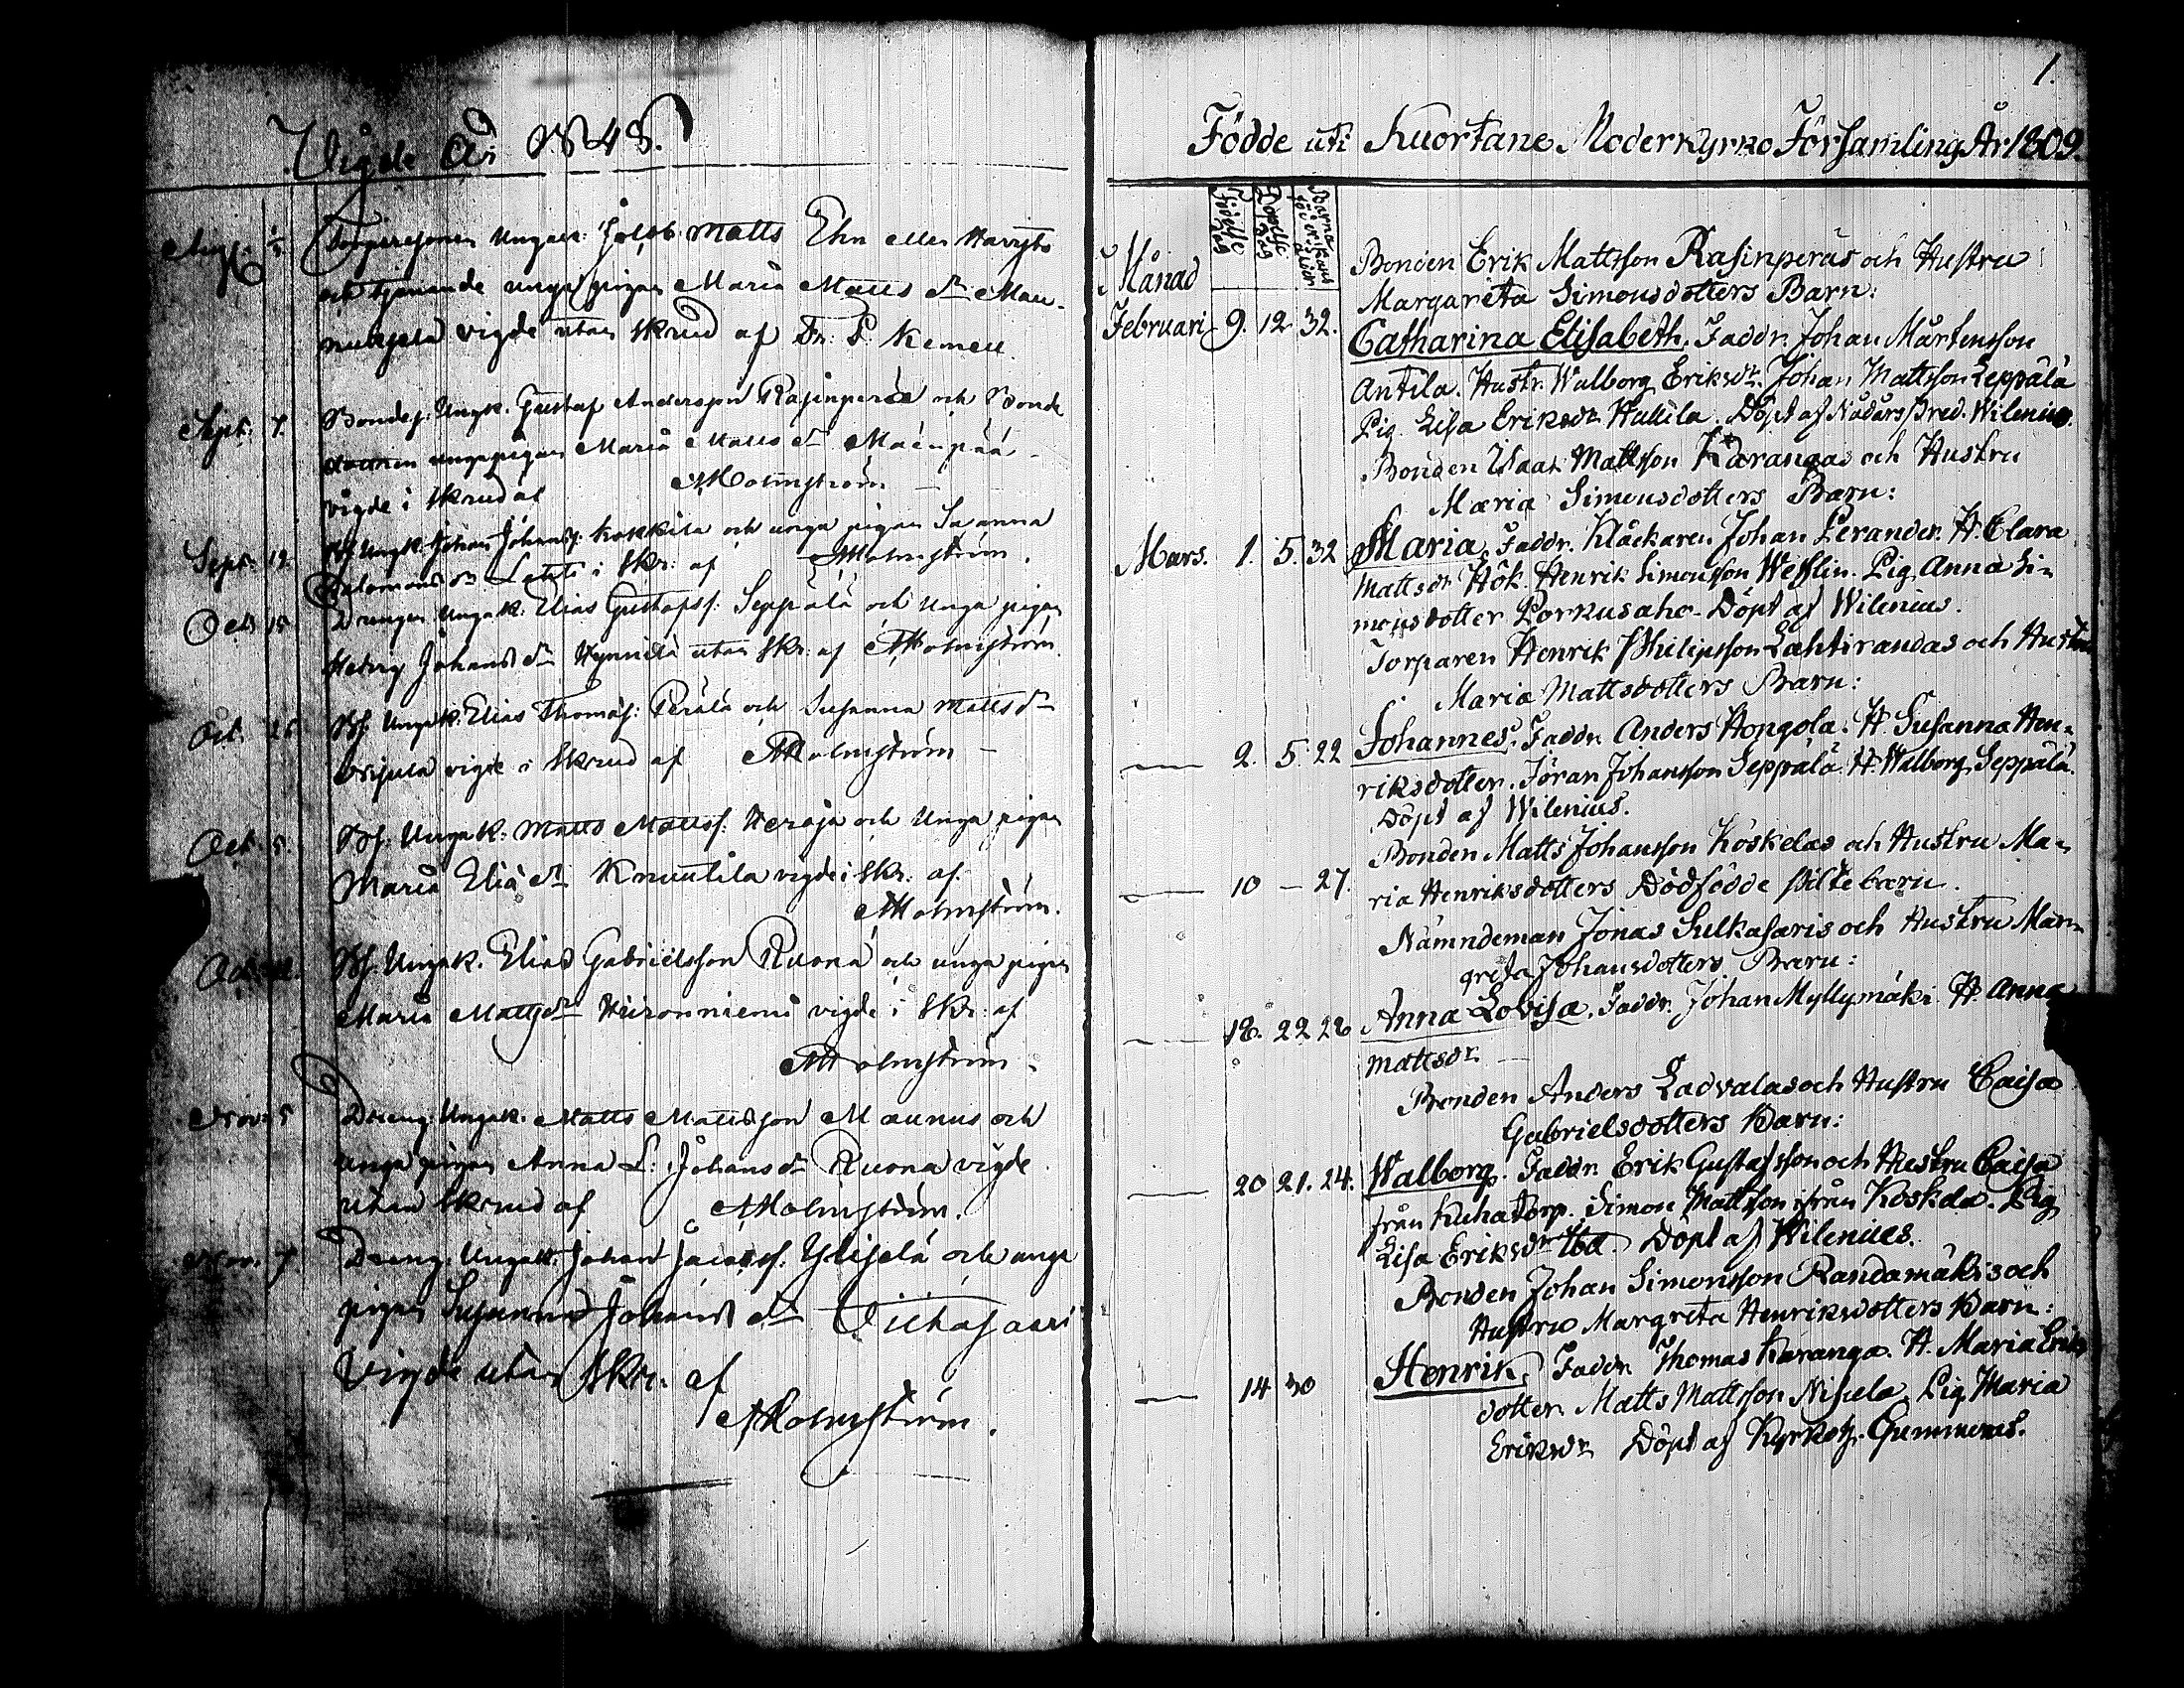 Vigde År 1848.
Aug.
Ungkar: Jakob Matts Ehn eller Harrjus
och tjenande unga pigan Maria Matts dr Mau-
nuksela vigde utan skrud af Fr. P. Kemell.
Sept. 7. Bondes. Ungk. Gustaf Andersson Rasinperä och Bonde
dottren ungapigan Maria Matts dr Mäenpää
vigde i skrud af AHolmström
Sept. 12. Bs. Ungk. Johan Johanss. Kokkila och unga pigan Susanna
Salomons dr i Skr: af AHolmström.
Oct. 15. Drengen Ungk. Elias Gustafss. Seppälä och Unga pigan
Hedvig Johans dr utan Skr: af AHolmström.
Oct. 26 Bs. Ungk. Elias Thomass: Perälä och Susanna Mattsdr
vigde i Skrud af AHolmström
Oct. 5. Bs. Ungk: Matts Mattss. Heroja och Unga pigan
Maria Elia dr Knuutila vigde i Skr: af
AHolmström.
Oct. Bs. Ungk. Elias Gabrielsson Ruona och unga pigan
Maria Matts dr Hiironniemi vigde i Skr: af
AHolmström.
Nov. 5 Dreng. Ungk. Matts Mattsson Maunus och
unga pigan Anna L: Johans dr Ruona vigde
utan Skrud af AHolmström.
Nov. 7 Dreng. Ungk. Johan Jacobss. Ylijelä och unga
pigan Susanna Johans dr
Vigde utan Skr: af
AHolmström.
1.
Födde uti Kuortane Moderkyrko Församling År 1809.
Månad
Födelse Dag
Döpelse Dag
Barna föderskans ålder
Bonden Erik Mattsson Rasinperäs och Hustru
Margareta Simonsdotters Barn:
Februari 9. 12 32. Catharina Elisabeth. Faddr. Johan Mårtensson
Antila. Hustr. Walborg Eriksdr. Johan Mattsson Leppälä
Pig. Lisa Eriksdr. Hallila. Döpt af Nådårs Pred. Wilenius.
Bonden Isaac Mattsson Karangas och Hustru
Maria Simonsdotters Barn:
Mars. 1. 5. 32 Maria Faddr. Klåckaren Johan Perander. H. Clara
Mattsdr Hök. Henrik Simonsson Wesslin. Pig. Anna Si-
monsdotter Porkusaho. Döpt af Wilenius.
Torparen Henrik Philipsson Lahtirandas och Hustru
Maria Mattsdotters Barn:
— 2. 5. 22 Johannes. Faddr. Anders Hongola. H. Susanna Hen-
riksdotter. Jöran Johansson Seppälä. H. Walborg Seppälä.
Döpt af Wilenius.
Bonden Matts Johansson Koskelas och Hustru Ma-
— 10 — 27. ria Henriksdotters Dödfödde flicke barn.
Nämndeman Jonas Sulkasaris och Hustru Mar-
greta Johansdotters Barn:
— 18. 22 28 Anna Lovisa. Faddr. Johan Myllymäki H. Anna
Mattsdr. —
Bonden Anders Ladvalas och Hustru Caisa
Gabrielsdotters Barn:
— 20 21. 24. Walborg. Faddr. Erik Gustafsson och Hustru Caisa
från Kuhatorp. Simon Mattsson ifrån Koskela. Pig.
Lisa Eriksdr Ibd. Döpt af Wilenius.
Bonden Johan Simonsson Randamäkis och
Hustru Margreta Henriksdotters Barn:
— 14 30 Henrik, Faddr. Thomas Karanga. H. Maria Eriks
dotter. Matts Mattsson Nisula. Pig. Maria
Eriksdr Döpt af Kyrkohr. Gummerus.